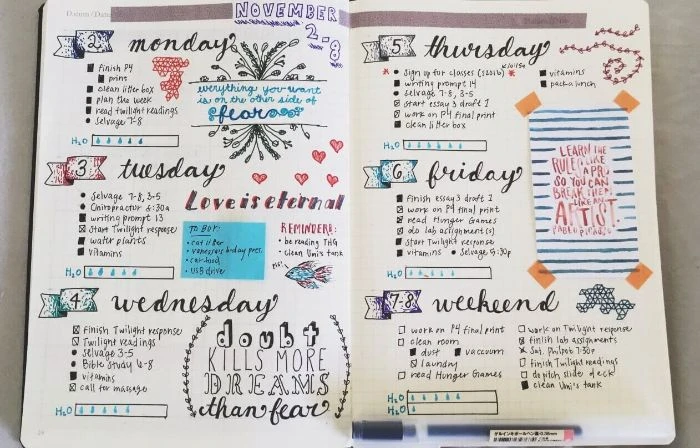 Datum / Date:
NOVEMBER
2-8
2 monday
finish P4
print
clean litter box
plan the week
read twilight readings
selvage 7-8
H2O
everything you want
is on the other side of
fear
3 tuesday
selvage 7-8, 3-5
chiropractor 6:30a
writing prompt 13
start Twilight response
water plants
vitamins
H2O
Love is eternal
TO BUY:
cat litter
vanessa's bday pres.
car food
USB drive
REMINDERS:
be reading THG
clean Uni's tank
4 wednesday
finish Twilight response
Twilight readings
selvage 3-5
Bible Study 6-8
vitamins
call for massage
H2O
H2O
doubt
KILLS MORE
DREAMS
than fear
5 thursday
sign up for classes (S2016)
writing prompt 14
selvage 7-8, 3-5
start essay 3 draft 1
work on P4 final print
clean litter box
vitamins
pack lunch
H2O
LEARN THE
RULES LIKE
A PRO
SO YOU CAN
BREAK THEM
LIKE AN
ARTIST.
PABLO PICASSO
6 friday
finish essay 3 draft 1
work on P4 final print
read Hunger Games
do lab assignment(s)
start Twilight response
vitamins
selvage 5:30p
H2O
7-8 weekend
work on P4 final print
clean room
dust
vacuum
laundry
read Hunger Games
work on Twilight response
finish lab assignments
Sat. Philpob 7:30p
finish Twilight readings
do pitch slide deck
clean Uni's tank
H2O
H2O